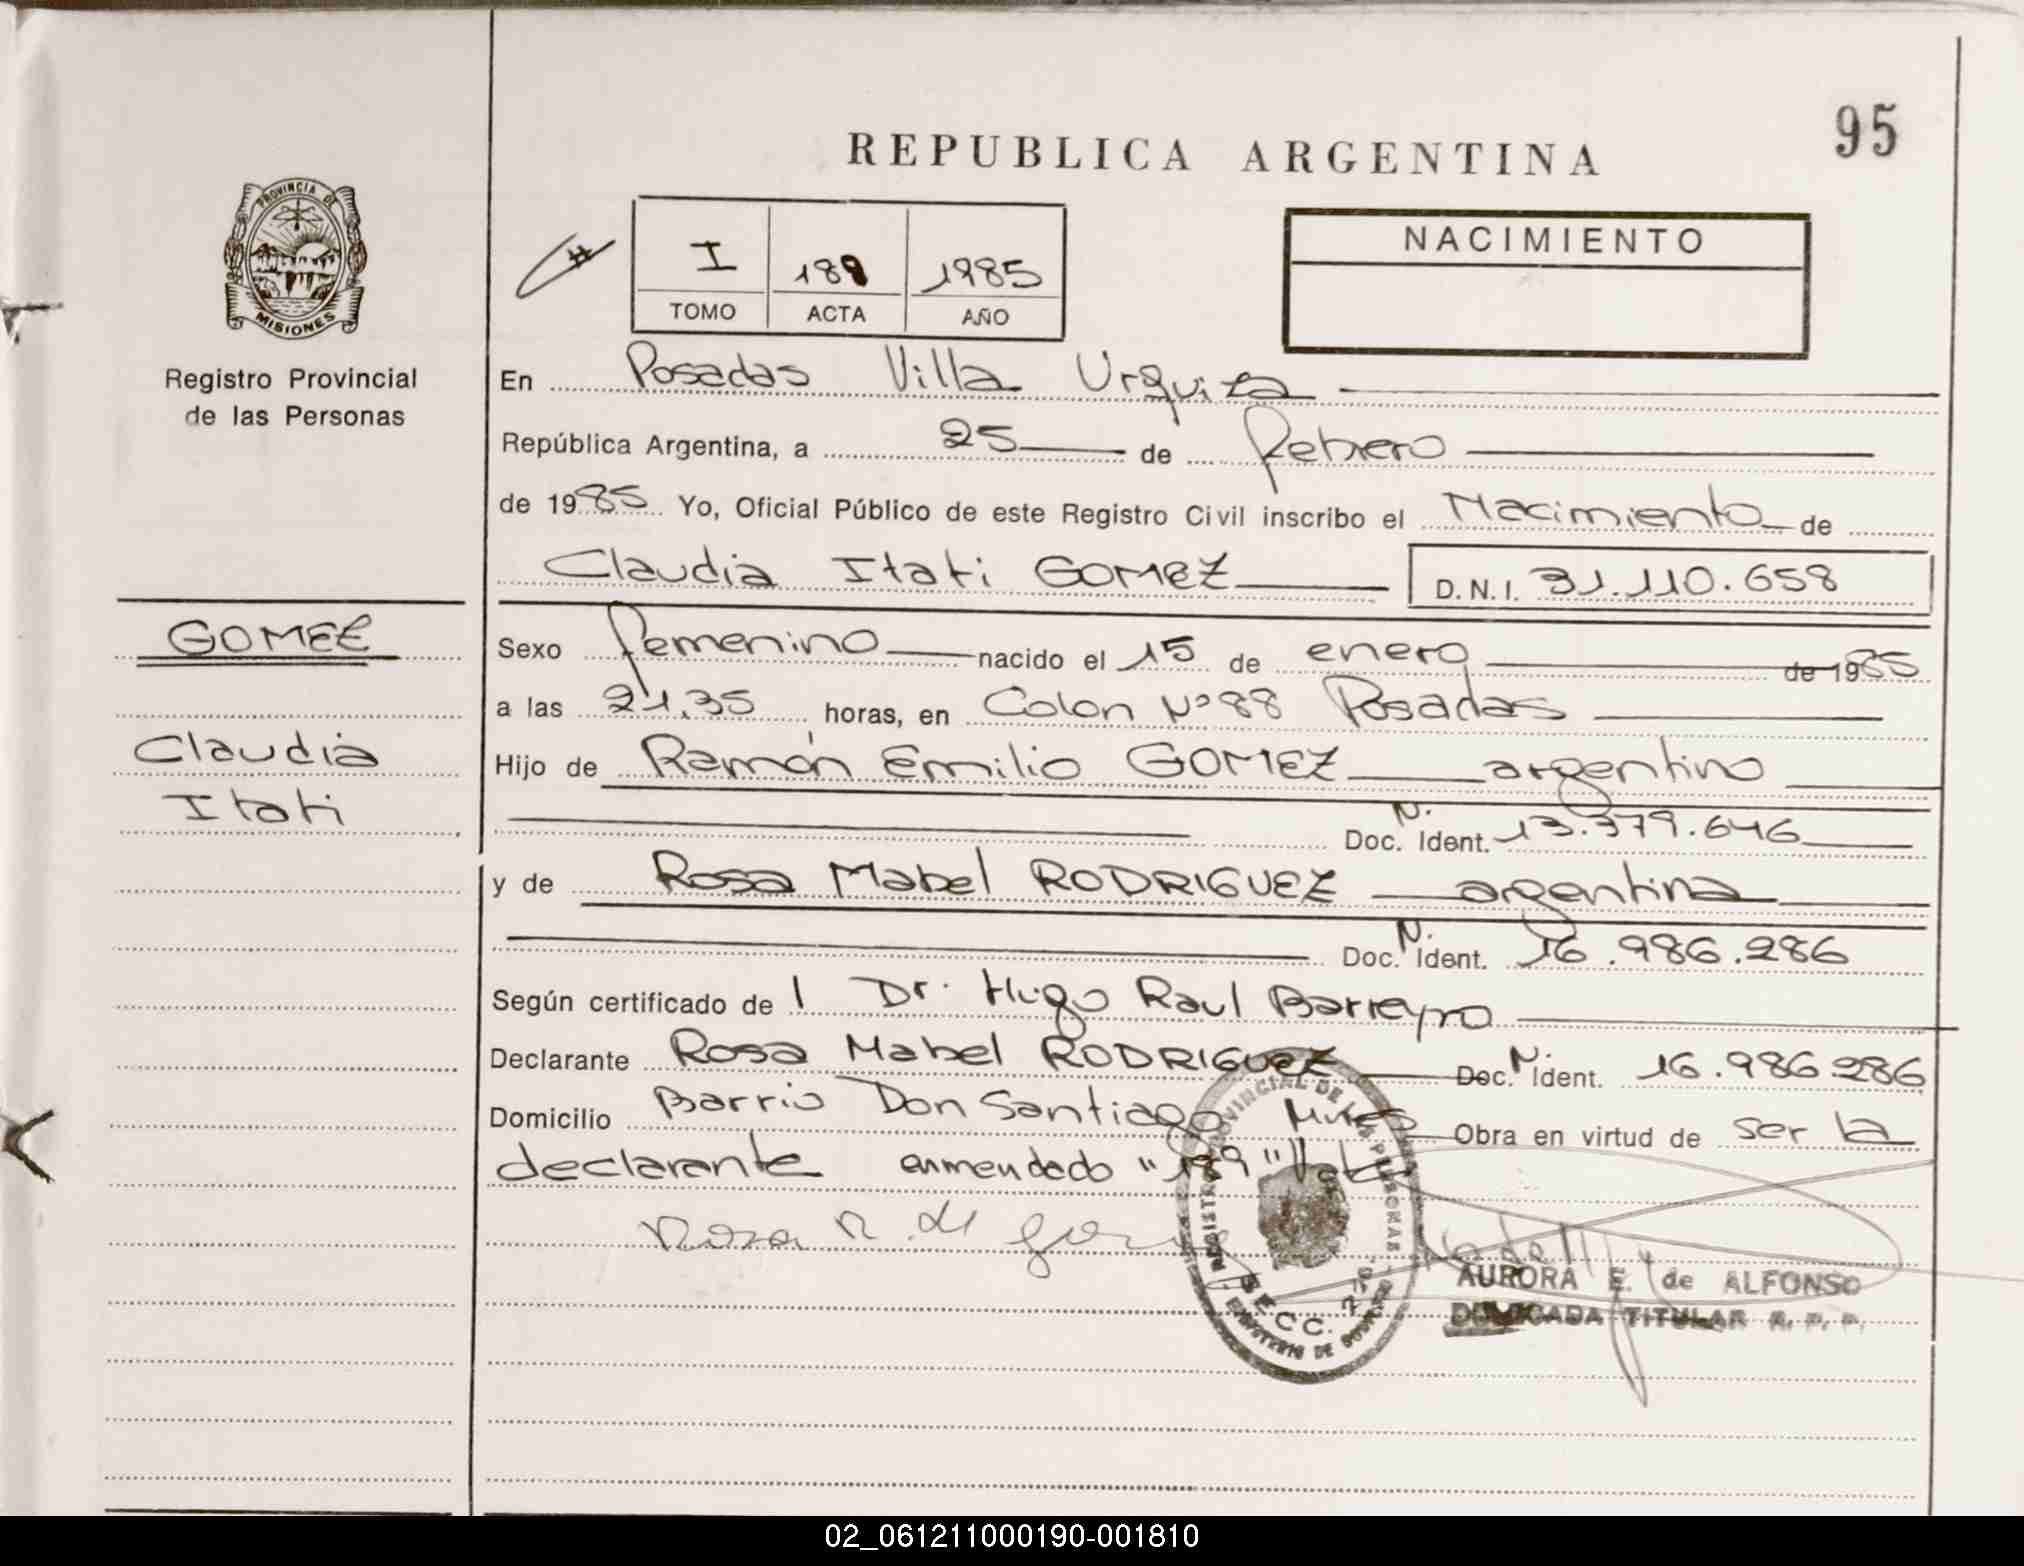 95
REPUBLICA ARGENTINA
PROVINCIA DE
MISIONES
Registro Provincial
de las Personas
I 189 1985
TOMO ACTA AÑO
NACIMIENTO
En Posadas Villa Urquiza
República Argentina, a 25 de febrero
de 1985 Yo, Oficial Público de este Registro Civil inscribo el Nacimiento de
Claudia Itati GOMEZ D.N.I. 31.110.658
GOMEZ
Claudia
Itati
Sexo femenino nacido el 15 de enero de 1985
a las 21,35 horas, en Colon Nº 88 Posadas
Hijo de Ramón Emilio GOMEZ argentino
Doc. N. Ident. 13.379.646
y de Rosa Mabel RODRIGUEZ argentina
Doc. N. Ident. 16.986.286
Según certificado de l Dr. Hugo Raul Barreyro
Declarante Rosa Mabel RODRIGUEZ Doc. N. Ident. 16.986.286
Domicilio Barrio Don Santiago Obra en virtud de ser la
declarante enmendado "189" Vale
Rosa R. de
REGISTRO PROVINCIAL DE LAS PERSONAS
SECC.
MINISTERIO DE
AURORA E. de ALFONSO
DELEGADA TITULAR R. P. P.
02_061211000190-001810